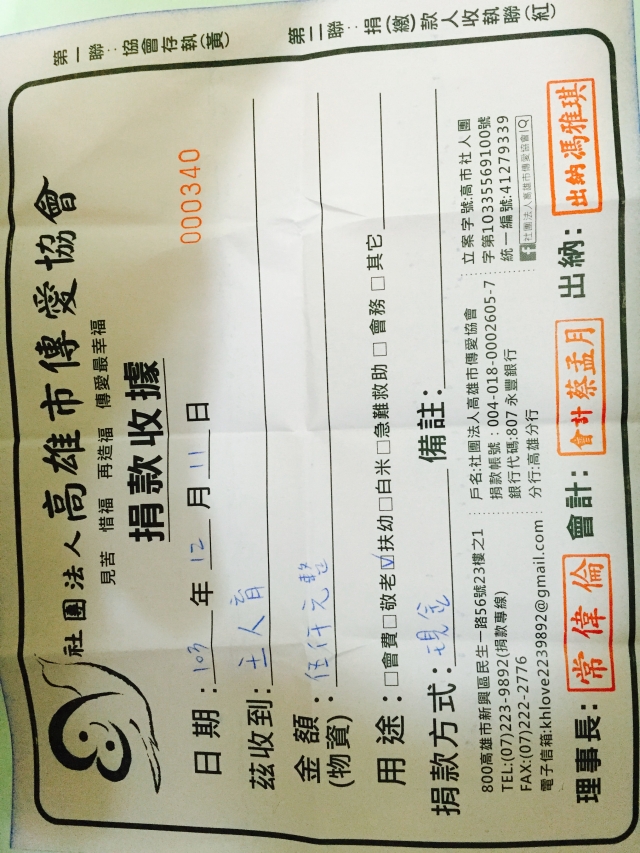 第一聯：協會存執(黃)
第二聯：捐(繳)款人收執聯(紅)
社團法人高雄市傳愛協會
見苦 惜福 再造福 傳愛最幸福
捐款收據
000340
日期：103年12月11日
茲收到：王人育
金額：伍仟元整
(物資)
用途：□會費□敬老☑扶幼□白米□急難救助□會務□其它
捐款方式：現金 備註：
800高雄市新興區民生一路56號23樓之1
TEL:(07)223-9892(捐款專線)
FAX:(07)222-2776
電子信箱:khlove2239892@gmail.com
戶名:社團法人高雄市傳愛協會
捐款帳號：004-018-0002605-7
銀行代碼:807 永豐銀行
分行:高雄分行
立案字號:高市社人團
字第10335569100號
統一編號:41279339
f 社團法人高雄市傳愛協會
理事長：常偉倫 會計：會計蔡孟月 出納：出納馮雅琪